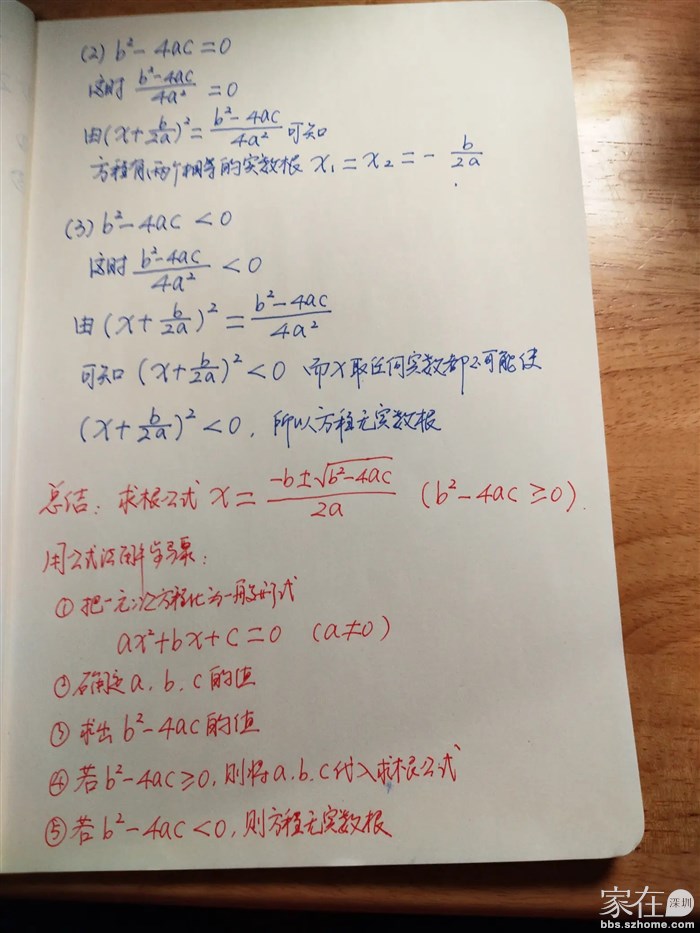 (2) b²-4ac=0
这时 (b²-4ac)/(4a²) = 0
由(x+b/2a)²=(b²-4ac)/(4a²)可知
方程有两个相等的实数根 x₁=x₂=-b/2a
(3) b²-4ac<0
这时 (b²-4ac)/(4a²) < 0
由(x+b/2a)²=(b²-4ac)/(4a²)
可知(x+b/2a)²<0 而x取任何实数都不可能使
(x+b/2a)²<0, 所以方程无实数根
总结: 求根公式 x=(-b±√(b²-4ac))/(2a) (b²-4ac≥0).
用公式法解步骤:
①把一元二次方程化为一般形式
ax²+bx+c=0 (a≠0)
②确定a.b.c的值
③求出b²-4ac的值
④若b²-4ac≥0,则将a.b.c代入求根公式
⑤若b²-4ac<0,则方程无实数根
家在深圳
bbs.szhome.com